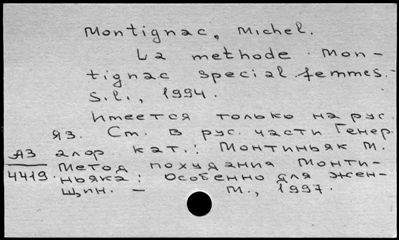 Montignac, Michel.
La methode Mon-
tignac special femmes.-
S.l., 1994.
Имеется только на рус.
яз. См. в рус. части Генер.
алф. кат.: Монтиньяк М.
А3
4419
Метод похудания Монти-
ньяка: Особенно для жен-
щин. - М., 1997.